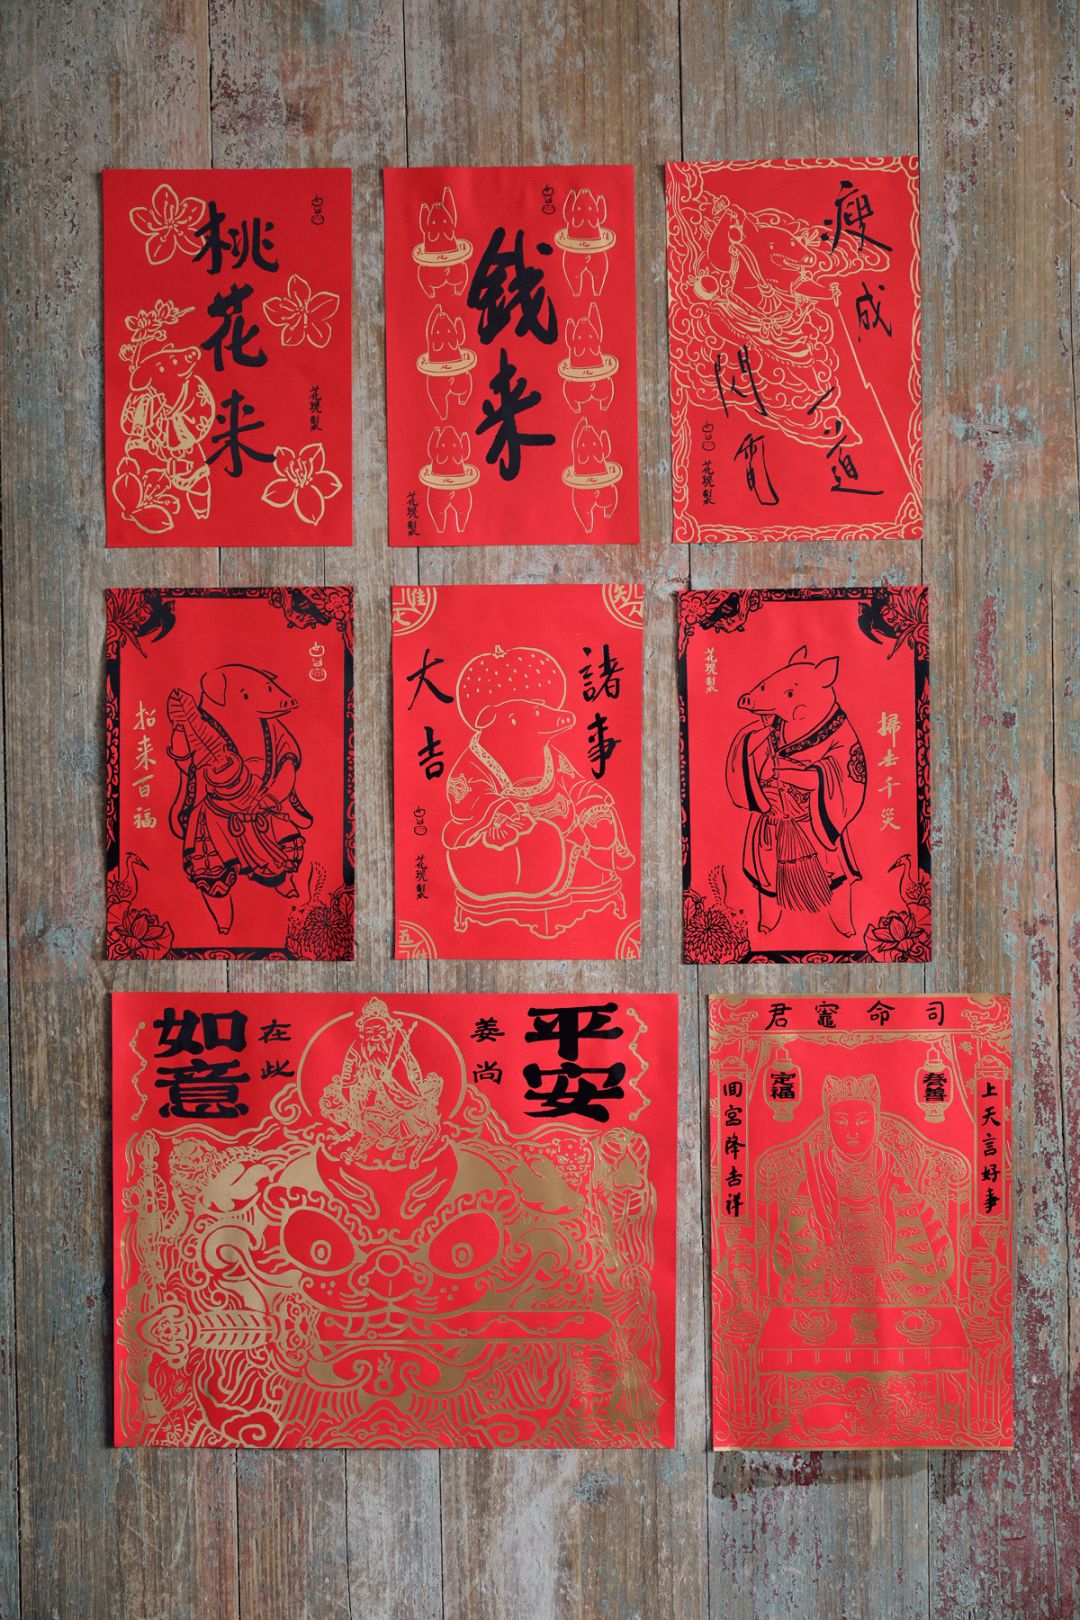 桃花来
花現製
錢来
花現製
瘦成
一道
閃電
花現製
招来百福
諸事
大吉
花現製
掃去千災
花現製
平安
姜尚
在此
如意
司命竈君
上天言好事
回宮降吉祥
定福